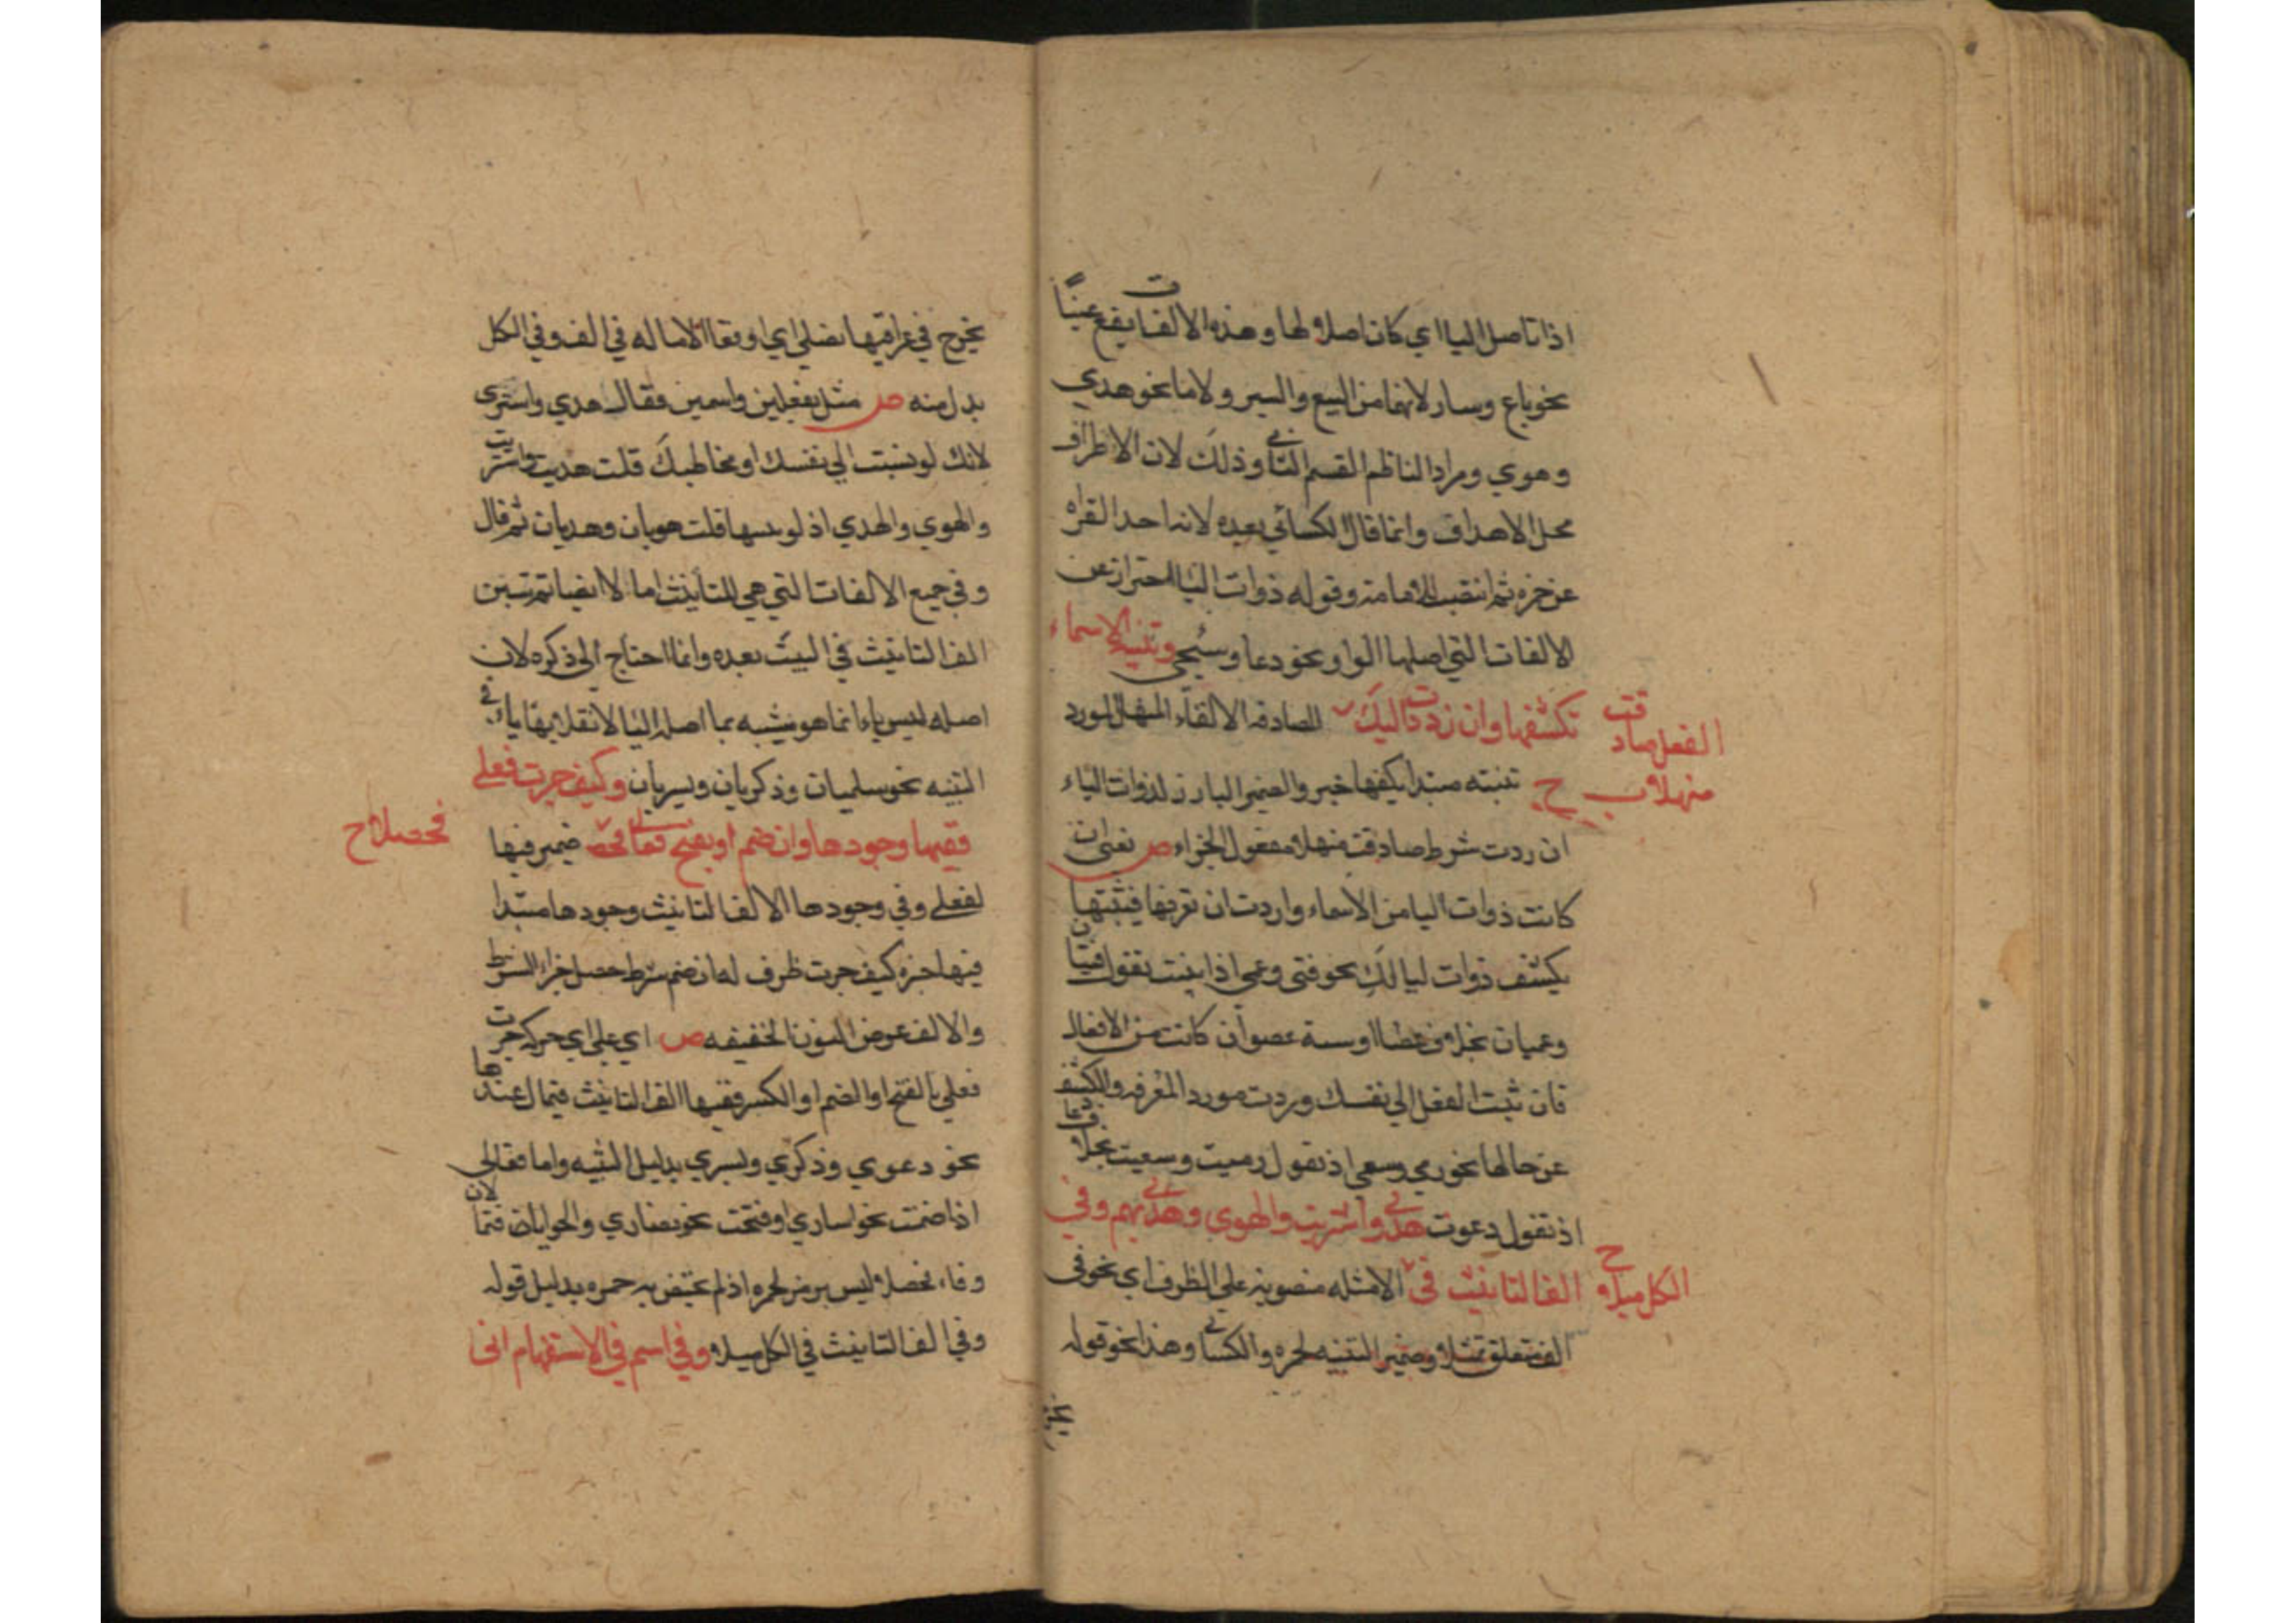 اذا تاصل اليا اي كان اصلا لها وهذه الالفات يقع عينًا
نحو باع وسار لانهما من البيع والسير ولاما نحو هدي
وهوي ومراد الناظم القسم الثاني وذلك لان الاطراف
محل الاهداف وانما قال الكسائي بعده لانه احد القراه
عن حمزه ثم انتقب الامامة وقوله ذوات اليا احتراز عن
الالفات التي اصلها الواو نحو دعا وسجي وتثنية الاسماء
تكشفها وان رددت اليك الفعل صادقت
منهلا ح المصادفه الالقاء المنهل المورد
تثنيته مبتدا يكفها خبر والضمير البارز لذوات الياء
ان ردت شرط صادقت منهلا مفعول الجزاء ص يعني ان
كانت ذوات اليا من الاسماء واردت ان تعرفها فثنيتها
يكشف ذوات ليا لك نحو فتى وعمى اذا بنيت تقول فتيان
وعميان بخلاف عصا اوسة عصوان كانت من الافعال
فان ثبت الفعل الي نفسك وردت مورد المعرفه والكشف
عن حالها نحو رمي وسعى اذ تقول رميت وسعيت بخلاف دعا
اذ تقول دعوت هدى واشتريه والهوى وهديهم وفي
الف التانيث في الكل ميلا ح الامثله منصوبة علي الظرف اي نحو في
الف متعلق بميلا وضمير التثنيه لحمزه والكسائي وهذا نحو قوله
يخرج في عراقيبها نصلي اي اوقعا الاماله في الف وفي الكل
بدل منه ص مثل بفعلين واسمين فقال هدي واشترى
لانك لو نسبت الي نفسك او مخاطبك قلت هديت واشتريت
والهوي والهدي اذ لو قلت هويان وهديان ثم قال
وفي جميع الالفات التي هي للتأنيث اما لا ايضا ثم تبين
الف التانيث في البيت بعده وانما احتاج الى ذكره لان
اصله ليس ياء انما هو مشبه بما اصله اليا لانقلابها ياء في
التثنيه نحو سلميان وذكريان ويسريان وكيف جرت فعلى
ففيها وجودها وان ضم او يفتح فعالى فحصلا ح ضمير فيها
لفعلي وفي وجودها الالف التانيث وجودها مبتدا
فيها خبره كيف جرت ظرف له ان ضم شرط حصل جزاء الشرط
والالف عوض النون الخفيفه ص اي علي اي حركة جرت
فعلي بالفتح او الضم او الكسر ففيها الف التانيث فيمال عندها
نحو دعوي وذكري ويسري بدليل التثنيه واما فعالى
اذا ضمت نحو اساري او فتحت نحو نصاري والحوايا لان فتما
وفاء فحصلا ليس برمز لحمزه اذ لم يختص به حمزه بدليل قوله
وفي الف التانيث في الكل ميلا وفي اسم في الاستفهام انى